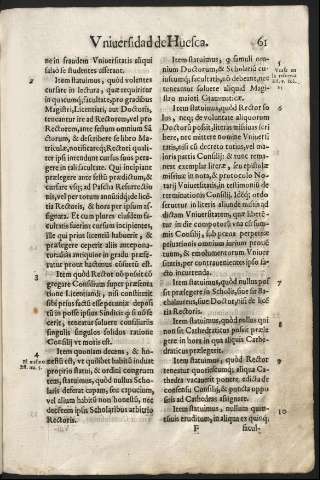 Vniuersidad de Huesca.
61
ne in fraudem Vniuersitatis aliqui
falsò se studentes asserant.
2
Item statuimus, quòd volentes
cursare in lectura, quæ requiritur
in quacumq; facultate, pro gradibus
Magistri, Licentiati, aut Doctoris,
teneantur ire ad Rectorem, vel pro
Rectorem, ante festum omnium Sã
ctorum, & describere se libro Ma-
triculæ, notificareq; Rectori quali-
ter ipsi intendunt cursus suos pera-
gere in tali facultate. Qui incipiant
prælegere ante festũ prædictum, &
cursare vsq; ad Pascha Resurrectio
nis, vel per totum annũ
Rectoris, & hora per ipsum as-
signata. Et cum plures eiusdem fa-
cultatis fuerint cursum incipientes,
ille qui prius licentiã habuerit, &
præsegere ceperit alijs antepona-
tur
fuerit prout hactenus cõsuetũ est.
3
Item quòd Rector nõ possit cõ
gregare Consilium super præsenta
tione Licentiandi, nisi constiterit
sibi prius factũ esse
tũ in posse ipsius Sindici: & si nõ fe
cerit, teneatur soluere consiliarijs
singulis singulos solidos ratione
Consilij vt moris est.
4
Item quoniam decens, & ho-
nestũ est, vt quilibet habitũ induat
proprij statui, & ordini congruum
tem, statuimus, quòd nullus Scho-
laris deferat capam, seu capucium,
vel alium habitũ non honestũ, nec
decentem ipsis Scholaribus arbitrio
Rectoris.
5
Item statuimus, q̃ famuli om-
nium Doctorum, & Scholariũ cu-
iuscumq; facultatis, nõ debeant, nec
teneantur soluere aliquid Magi-
stro maiori Grammaticæ.
6
Item statuimus, quòd Rector so
lus, neq; de voluntate aliquorum
Doctorũ possit, literas missiuas scri
bere, nec mittere nomine Vniuersi-
tatis, nisi cũ decreto totius, vel ma-
ioris partis Consilij: & tunc rema-
neat exemplar literæ, seu epistolæ
missiuæ in nota, & protocolo No-
tarij Vniuersitatis, in testimoniũ de
terminationis Consilij. Idẽq; obser
uetur in literis aliunde missis ad
dictam Vniuersitatem, quæ liberè-
tur in die computorũ vna cũ sum-
mis Consilij, sub pœna perpetuæ
priuationis omnium iurium proue
tuum, & emolumentorum Vniuer
sitatis per contrauenientes ipso fa-
cto incurrenda.
7
Item statuimus, quòd nullus pos
sit prælegere in Scholis, siue sit Ba-
chalaureus, siue Doctor, nisi de licẽ
tia Rectoris.
8
Item statuimus, quòd nullus qui
non sit Cathedraticus possit præle
gere in hora in qua aliquis Cathe-
draticus prælegerit.
9
Item statuimus, quòd Rector
teneatur quotiescumq; aliqua Ca-
thedra vacauerit ponere edicta de
consensu Consilij, & puncta oppo
sitis ad Cathedras assignare.
10
Item statuimus, nullum quan-
tũuis eruditum, in aliqua ex quinq;
F
facul-